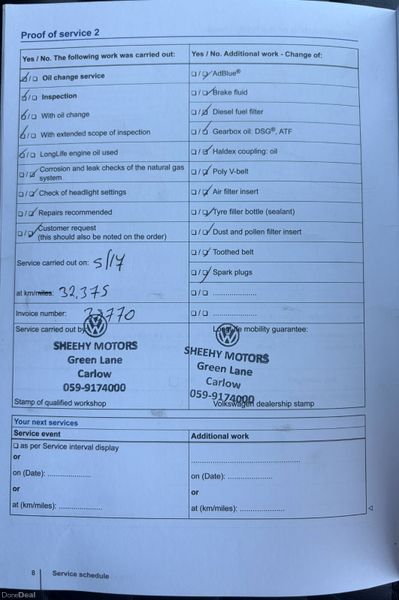 Proof of service 2
Yes / No. The following work was carried out:
☑/☐ Oil change service
☑/☐ Inspection
☑/☐ With oil change
☑/☐ With extended scope of inspection
☑/☐ LongLife engine oil used
☐/☑ Corrosion and leak checks of the natural gas
system
☐/☑ Check of headlight settings
☐/☑ Repairs recommended
☐/☑ Customer request
(this should also be noted on the order)
Service carried out on: 5/17
at km/miles: 32,375
Invoice number:
Service carried out by
SHEEHY MOTORS
Green Lane
Carlow
059-9174000
Stamp of qualified workshop
Yes / No. Additional work - Change of:
☐/☑ AdBlue®
☐/☑ Brake fluid
☐/☑ Diesel fuel filter
☐/☑ Gearbox oil: DSG®, ATF
☐/☑ Haldex coupling: oil
☐/☑ Poly V-belt
☐/☑ Air filter insert
☐/☑ Tyre filler bottle (sealant)
☐/☑ Dust and pollen filter insert
☐/☑ Toothed belt
☐/☑ Spark plugs
☐/☐ ....................
☐/☐ ....................
mobility guarantee:
SHEEHY MOTORS
Green Lane
Carlow
059-9174000
Volkswagen dealership stamp
Your next services
Service event
☐ as per Service interval display
or
on (Date): ....................
or
at (km/miles): ....................
Additional work
........................................
on (Date): ....................
or
at (km/miles): ....................
8 Service schedule
DoneDeal